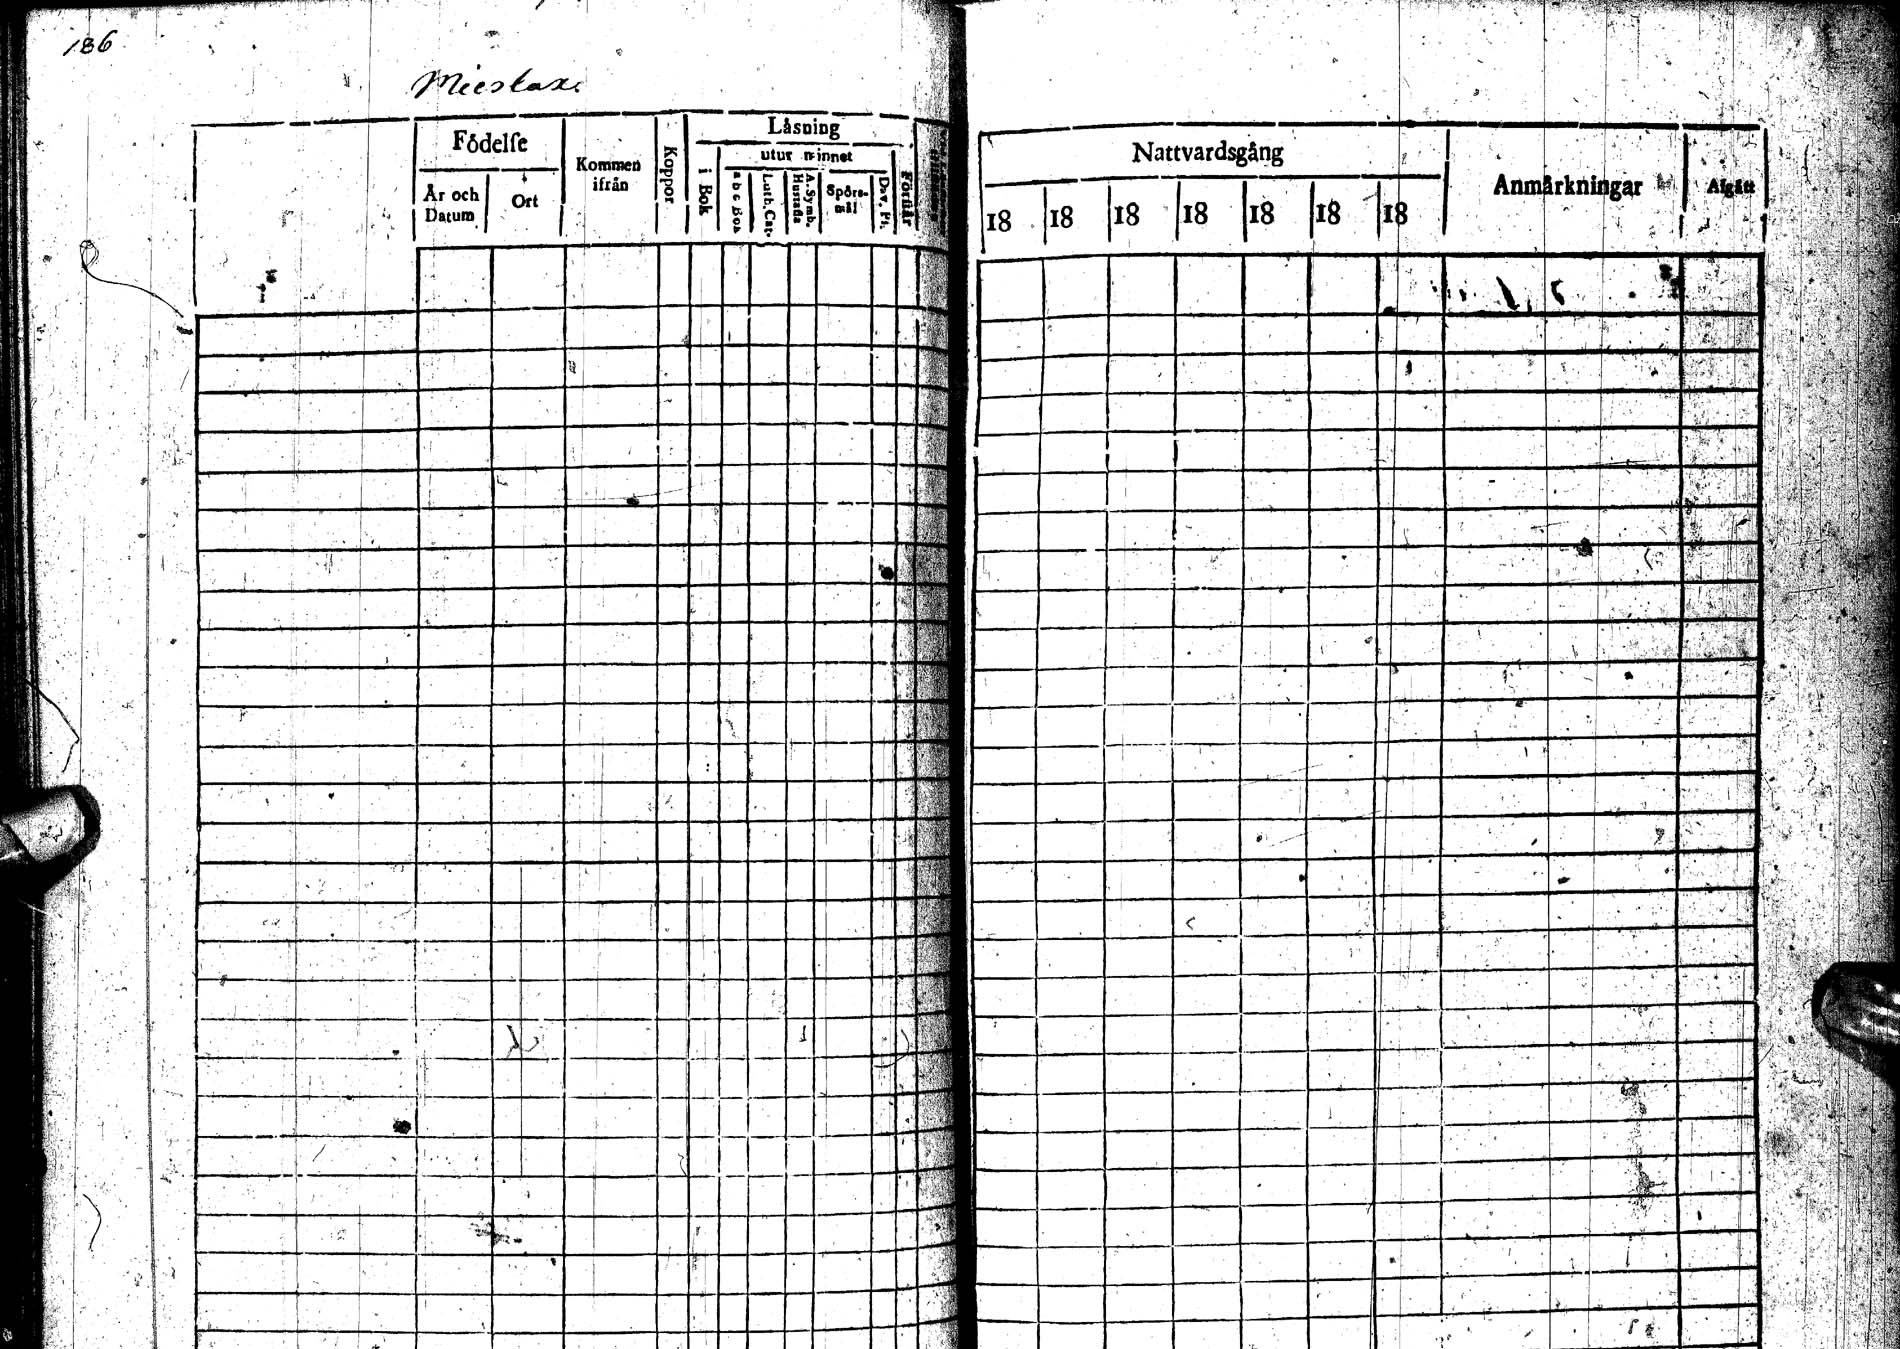 186
Mieslax.
Födelse
År och Datum
Ort
Kommen ifrån
Koppor
Läsning
i Bok
utur minnet
a b c Bok
Luth. Cat.
A. Symb. Hustafla
Spörs-mål
Dav. Ps.
Förstår
Nattvardsgång
18 18 18 18 18 18 18
Anmärkningar
Afgått